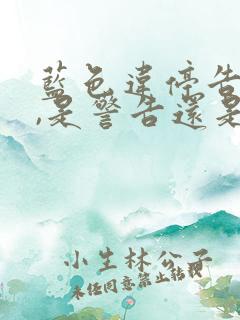 藍色違停告
,是警告還是
小生林公子
未经同意禁止转载